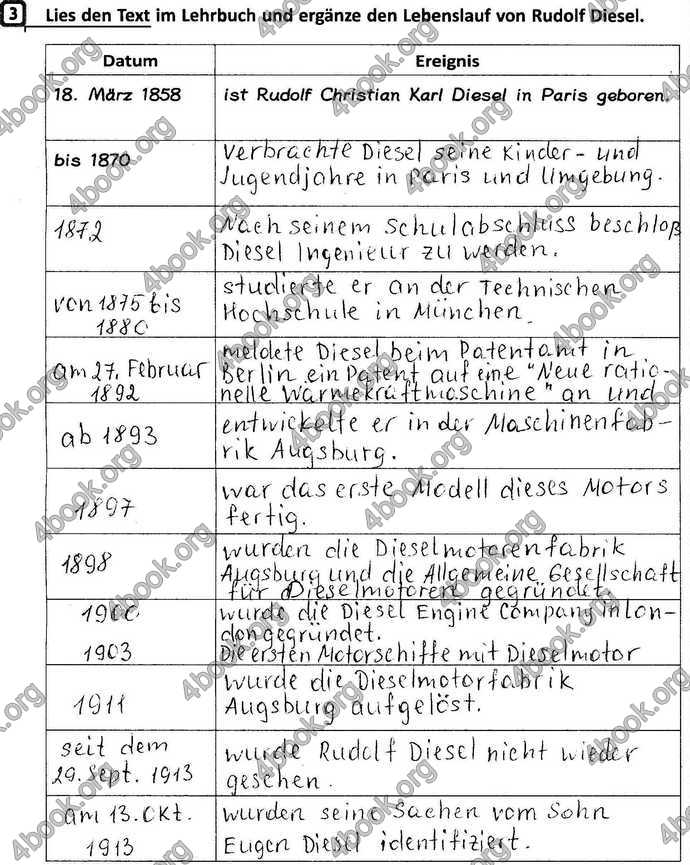 3 Lies den Text im Lehrbuch und ergänze den Lebenslauf von Rudolf Diesel.
Datum Ereignis
18. März 1858 ist Rudolf Christian Karl Diesel in Paris geboren.
bis 1870 verbrachte Diesel seine Kinder- und
Jugendjahre in Paris und Umgebung.
1872 Nach seinem Schulabschluss beschloß
Diesel Ingenieur zu werden.
von 1875 bis
1880
studierte er an der Technischen
Hochschule in München
am 27. Februar
1892
meldete Diesel beim Patentamt in
Berlin ein Patent auf eine "Neue ratio-
nelle Wärmekraftmaschine" an und
ab 1893 entwickelte er in der Maschinenfab-
rik Augsburg.
1897 war das erste Modell dieses Motors
fertig.
1898 wurden die Dieselmotorenfabrik
Augsburg und die Allgemeine Gesellschaft
für Dieselmotoren gegründet.
1900 wurde die Diesel Engine Company in Lon-
don gegründet.
1903 Die ersten Motorschiffe mit Dieselmotor
1911 wurde die Dieselmotorfabrik
Augsburg aufgelöst.
seit dem
29. Sept. 1913
wurde Rudolf Diesel nicht wieder
gesehen.
am 13. Okt.
1913
wurden seine Sachen vom Sohn
Eugen Diesel identifiziert.
4book.org